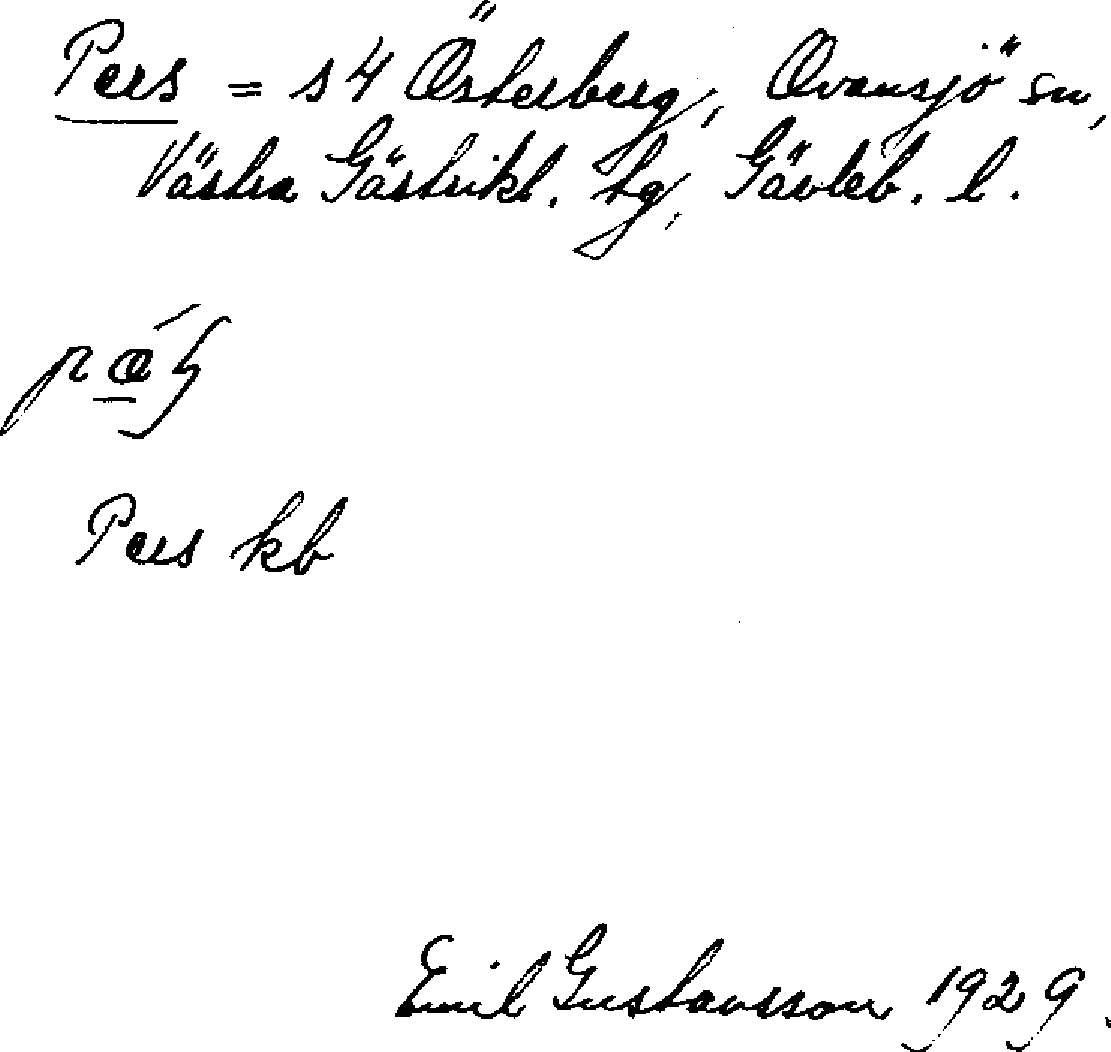 Pers = s 4 Österberg, Ovansjö sn,
Västra Gästrikl. tg, Gävleb. l.
Pers kb
Emil Gustavsson 1929.